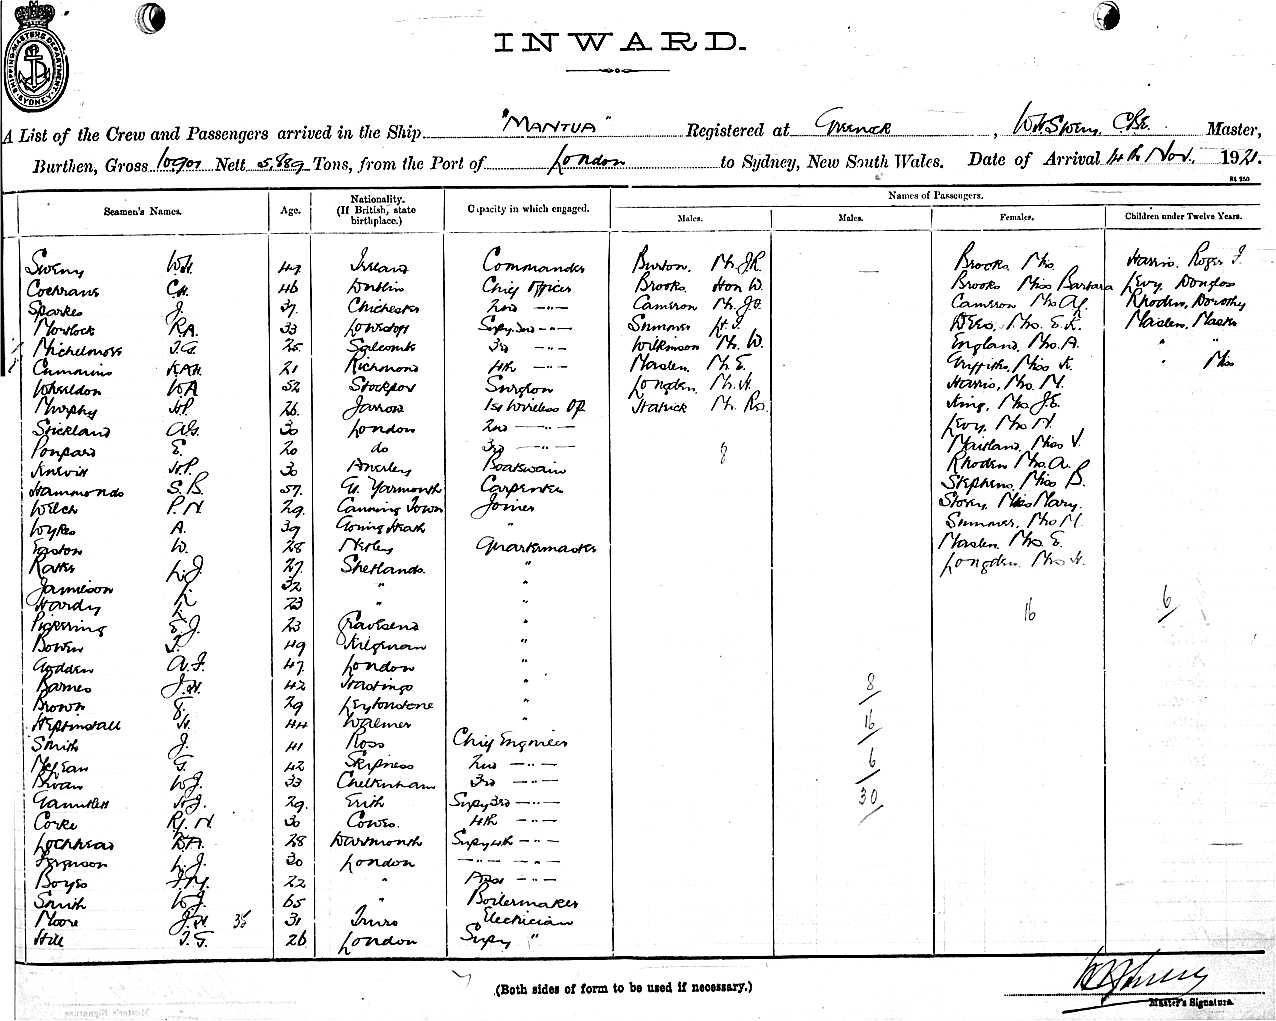 SHIPPING MASTERS DEPARTMENT SYDNEY
INWARD.
A List of the Crew and Passengers arrived in the Ship "MANTUA" Registered at Greenock, Master,
Burthen, Gross Nett 5,889 Tons, from the Port of London to Sydney, New South Wales. Date of Arrival 4th Nov. 1921.
Seamen's Names. Age. Nationality. (If British, state birthplace.) Capacity in which engaged. Names of Passengers.
Males. Males. Females. Children under Twelve Years.
Sweny W.H. 47 Ireland Commander Burton. Mr. J.R. Brooks Mrs. Harris. Roger J.
Cochrane C.H. 46 Dublin Chief Officer Brooks Hon W. Brooks Miss Barbara Levy. Douglas
Sparkes J. 37 Chichester 2nd —"— Cameron Mr. Cameron Mrs. Rhoden, Dorothy
Mowlock R.A. 33 Lowestoft Supy. 3rd —"— Summer Mrs. E. Maslen, Master
Michelmore T.G. 25 Salcombe 3rd —"— Wilkinson Mr. W. England, Mrs. A. " "
Cummins 21 Richmond 4th —"— Maslen. Mr. E. Griffiths, Miss K. " Miss
Wheildon WA 52 Stockport Surgeon Longden. Mr. H. Harris, Mrs. M.
Murphy H.P. 26 Jarrow 1st Wireless Op Mr. King, Mrs. J.E.
Stickland A.G. 30 London 2nd —"— Levy. Mrs. H.
E. 20 do 3rd —"— 8 Maitland, Miss V.
H.P. 30 Anerley Boatswain Rhoden Mrs. A.
Hammonds S.B. 57. Gt. Yarmouth Carpenter Stephens, Miss B.
Welch P.N. 29 Canning Town Joiner Storey, Miss Mary.
Wykes A. 39 Goring Heath " Summer, Mrs. M.
Easton W. 28 Netley Quartermaster Maslen. Mrs. E.
L.J. 27 Shetlands. " Longden. Mrs. H.
Jamieson L. 32 " "
Hardy L. 23 " " 16 6
Pickering E.J. 23 Gravesend "
Bowen J. 49 "
Godden A.J. 47 London "
Barnes J.H. 42 Hastings " 8
Brown E. 29 Leytonstone "
Heptinstall H. 44 Walmer " 16
Smith J. 41 Ross Chief Engineer
McLean G. 42 Skipness 2nd —"— 6
W.J. 33 Cheltenham 3rd —"—
Gauntlett H.J. 29. Erith Supy 3rd —"— 30
Corke R.J.N. 30 Cowes. 4th —"—
Lochhead D.A. 28 Dartmouth Supy 4th —"—
Ferguson L.J. 30 London —"— —"—
Boyes J.M. 22 " —"—
Smith W.J. 65 " Boilermaker
Moore J.H. 35 31 Truro Electrician
Hill T.G. 26 London Supy "
(Both sides of form to be used if necessary.)
Master's Signature.